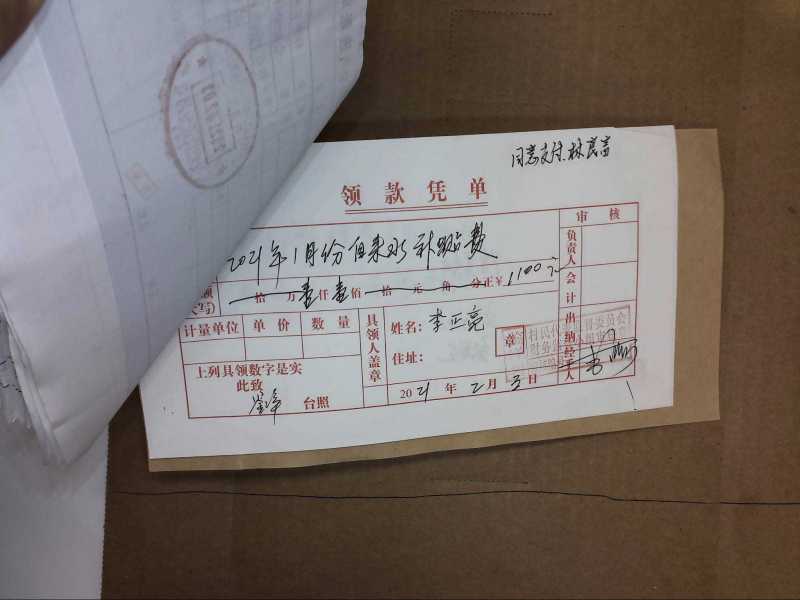 同意支付.林
领款凭单
2021年1月份自来水补贴费
审核
负责人
额
大写)
拾万壹仟壹佰拾元角分正￥1100元
会计
计量单位 单价 数量
具领人盖章
姓名: 李正亮
住址:
章
出纳
经手人
上列具领数字是实
此致
台照
2021年2月3日